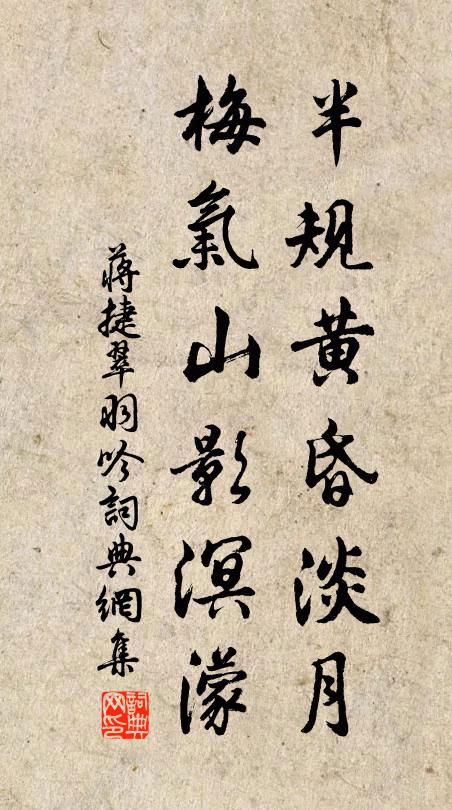 半規黃昏淡月
梅氣山影溟濛
蔣捷翠羽吟詞典網集
詞典网印